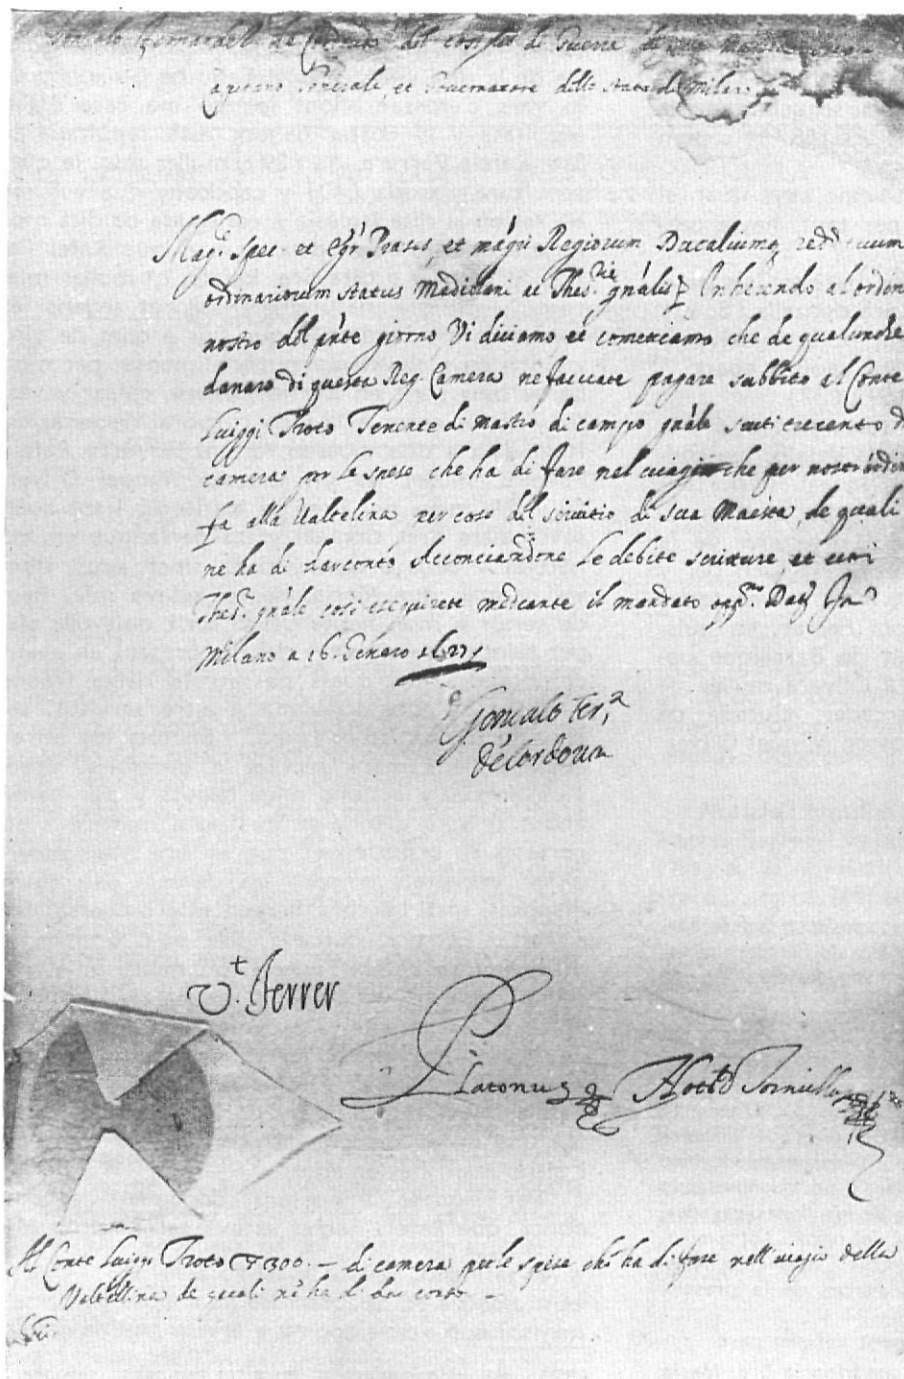 Gonzalo Fernandez de Cordova del Consiglio di Guerra di sua Maestà
Capitano Generale et Governatore dello Stato di Milano
Mag.ci Spec. et Egr. Praeses, et mag.ri Regiorum Ducaliumq. reddituum
ordinariorum Status Mediolani et Thes.rie gnális Inherendo al ordine
nostro del pnte giorno Vi diciamo et comettiamo che de qualunche
danaro di questa Reg. Camera ne facciate pagare subbito al Conte
Luiggi Troto Tenente di mastro di campo gnále scuti trecento di
camera per le spese che ha di fare nel viagio che per nostro ordine
fa alla Valtelina per cose del servitio di sua Maestà, de quali
ne ha di dar conto Acconciandone le debite scritture, et
Thes.ro gnále cosi esequirete mediante il mandato Dat. In
Milano a 16. Genaro 1627
Goncalo fer.z
de Cordoua
V.t Ferrer
Platonus Torniellus
Al Conte Luiggi Troto 300 – di camera per le spese che ha di fare nell viagio della
Valtellina de quali n'ha di dar conto –